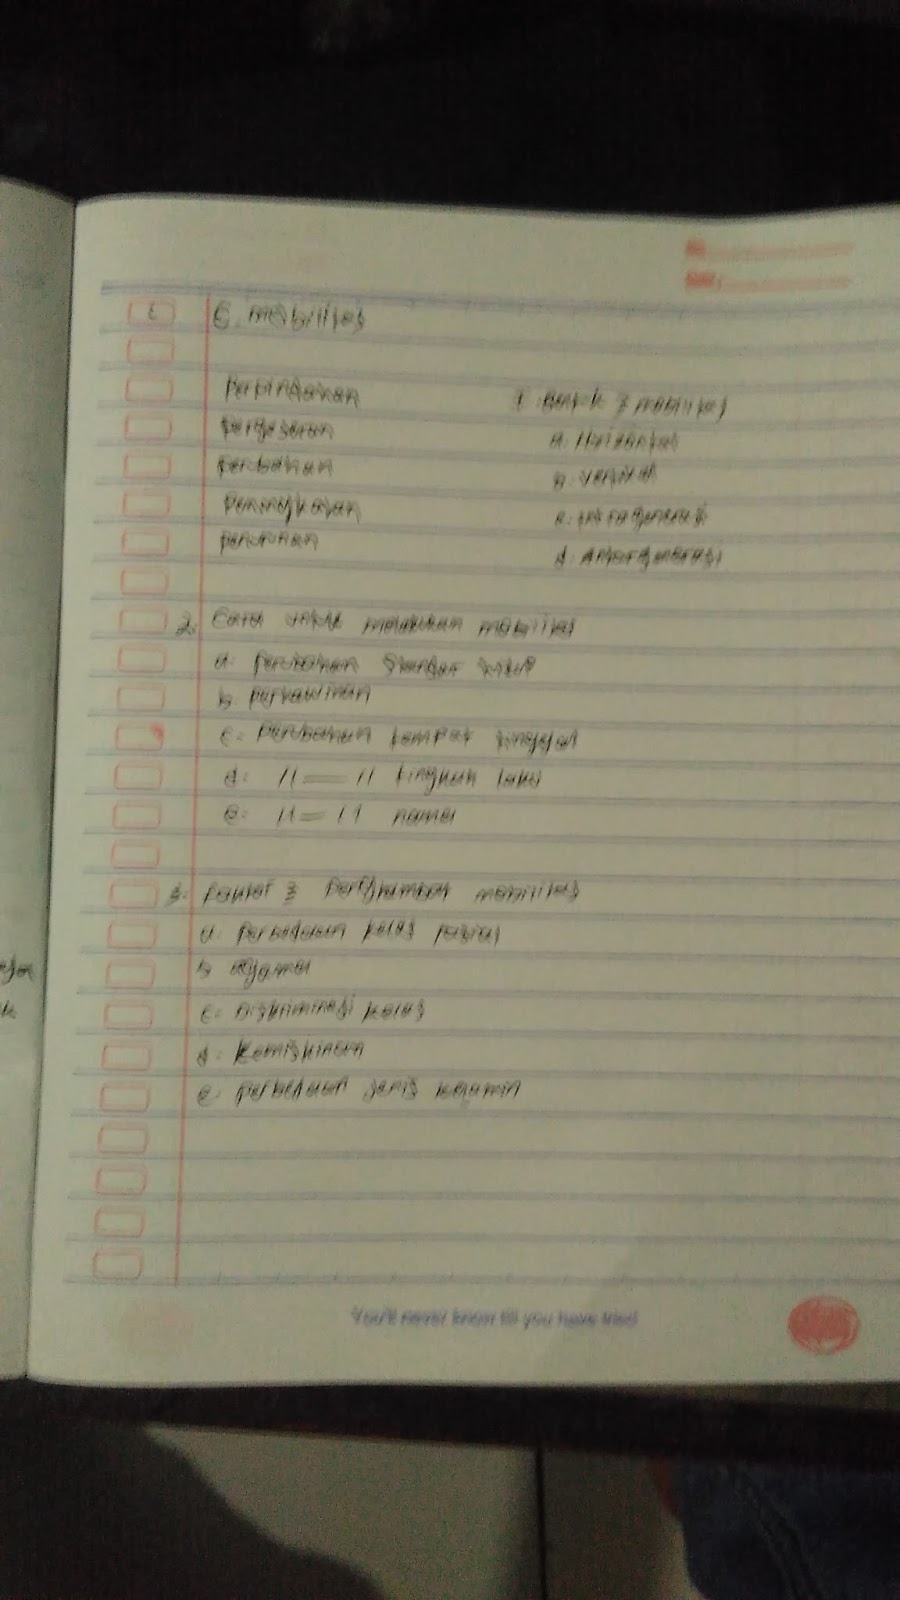 6. mobilitas
Perpindahan
Pergeseran
Perubahan
Peningkatan
penurunan
1. Bentuk 2 mobilitas
a. Horizontal
b. vertikal
c. intragenerasi
d. Antargenerasi
2. Cara untuk melakukan mobilitas
a. perubahan standar hidup
b. perkawinan
c. perubahan tempat tinggal
d. 11 — 11 tingkah laku
e. 11 — 11 nama
3. Faktor 2 penghambat mobilitas
a. perbedaan kelas
b. agama
c. Diskriminasi kelas
d. Kemiskinan
e. perbedaan jenis kelamin
You'll never know till you have tried